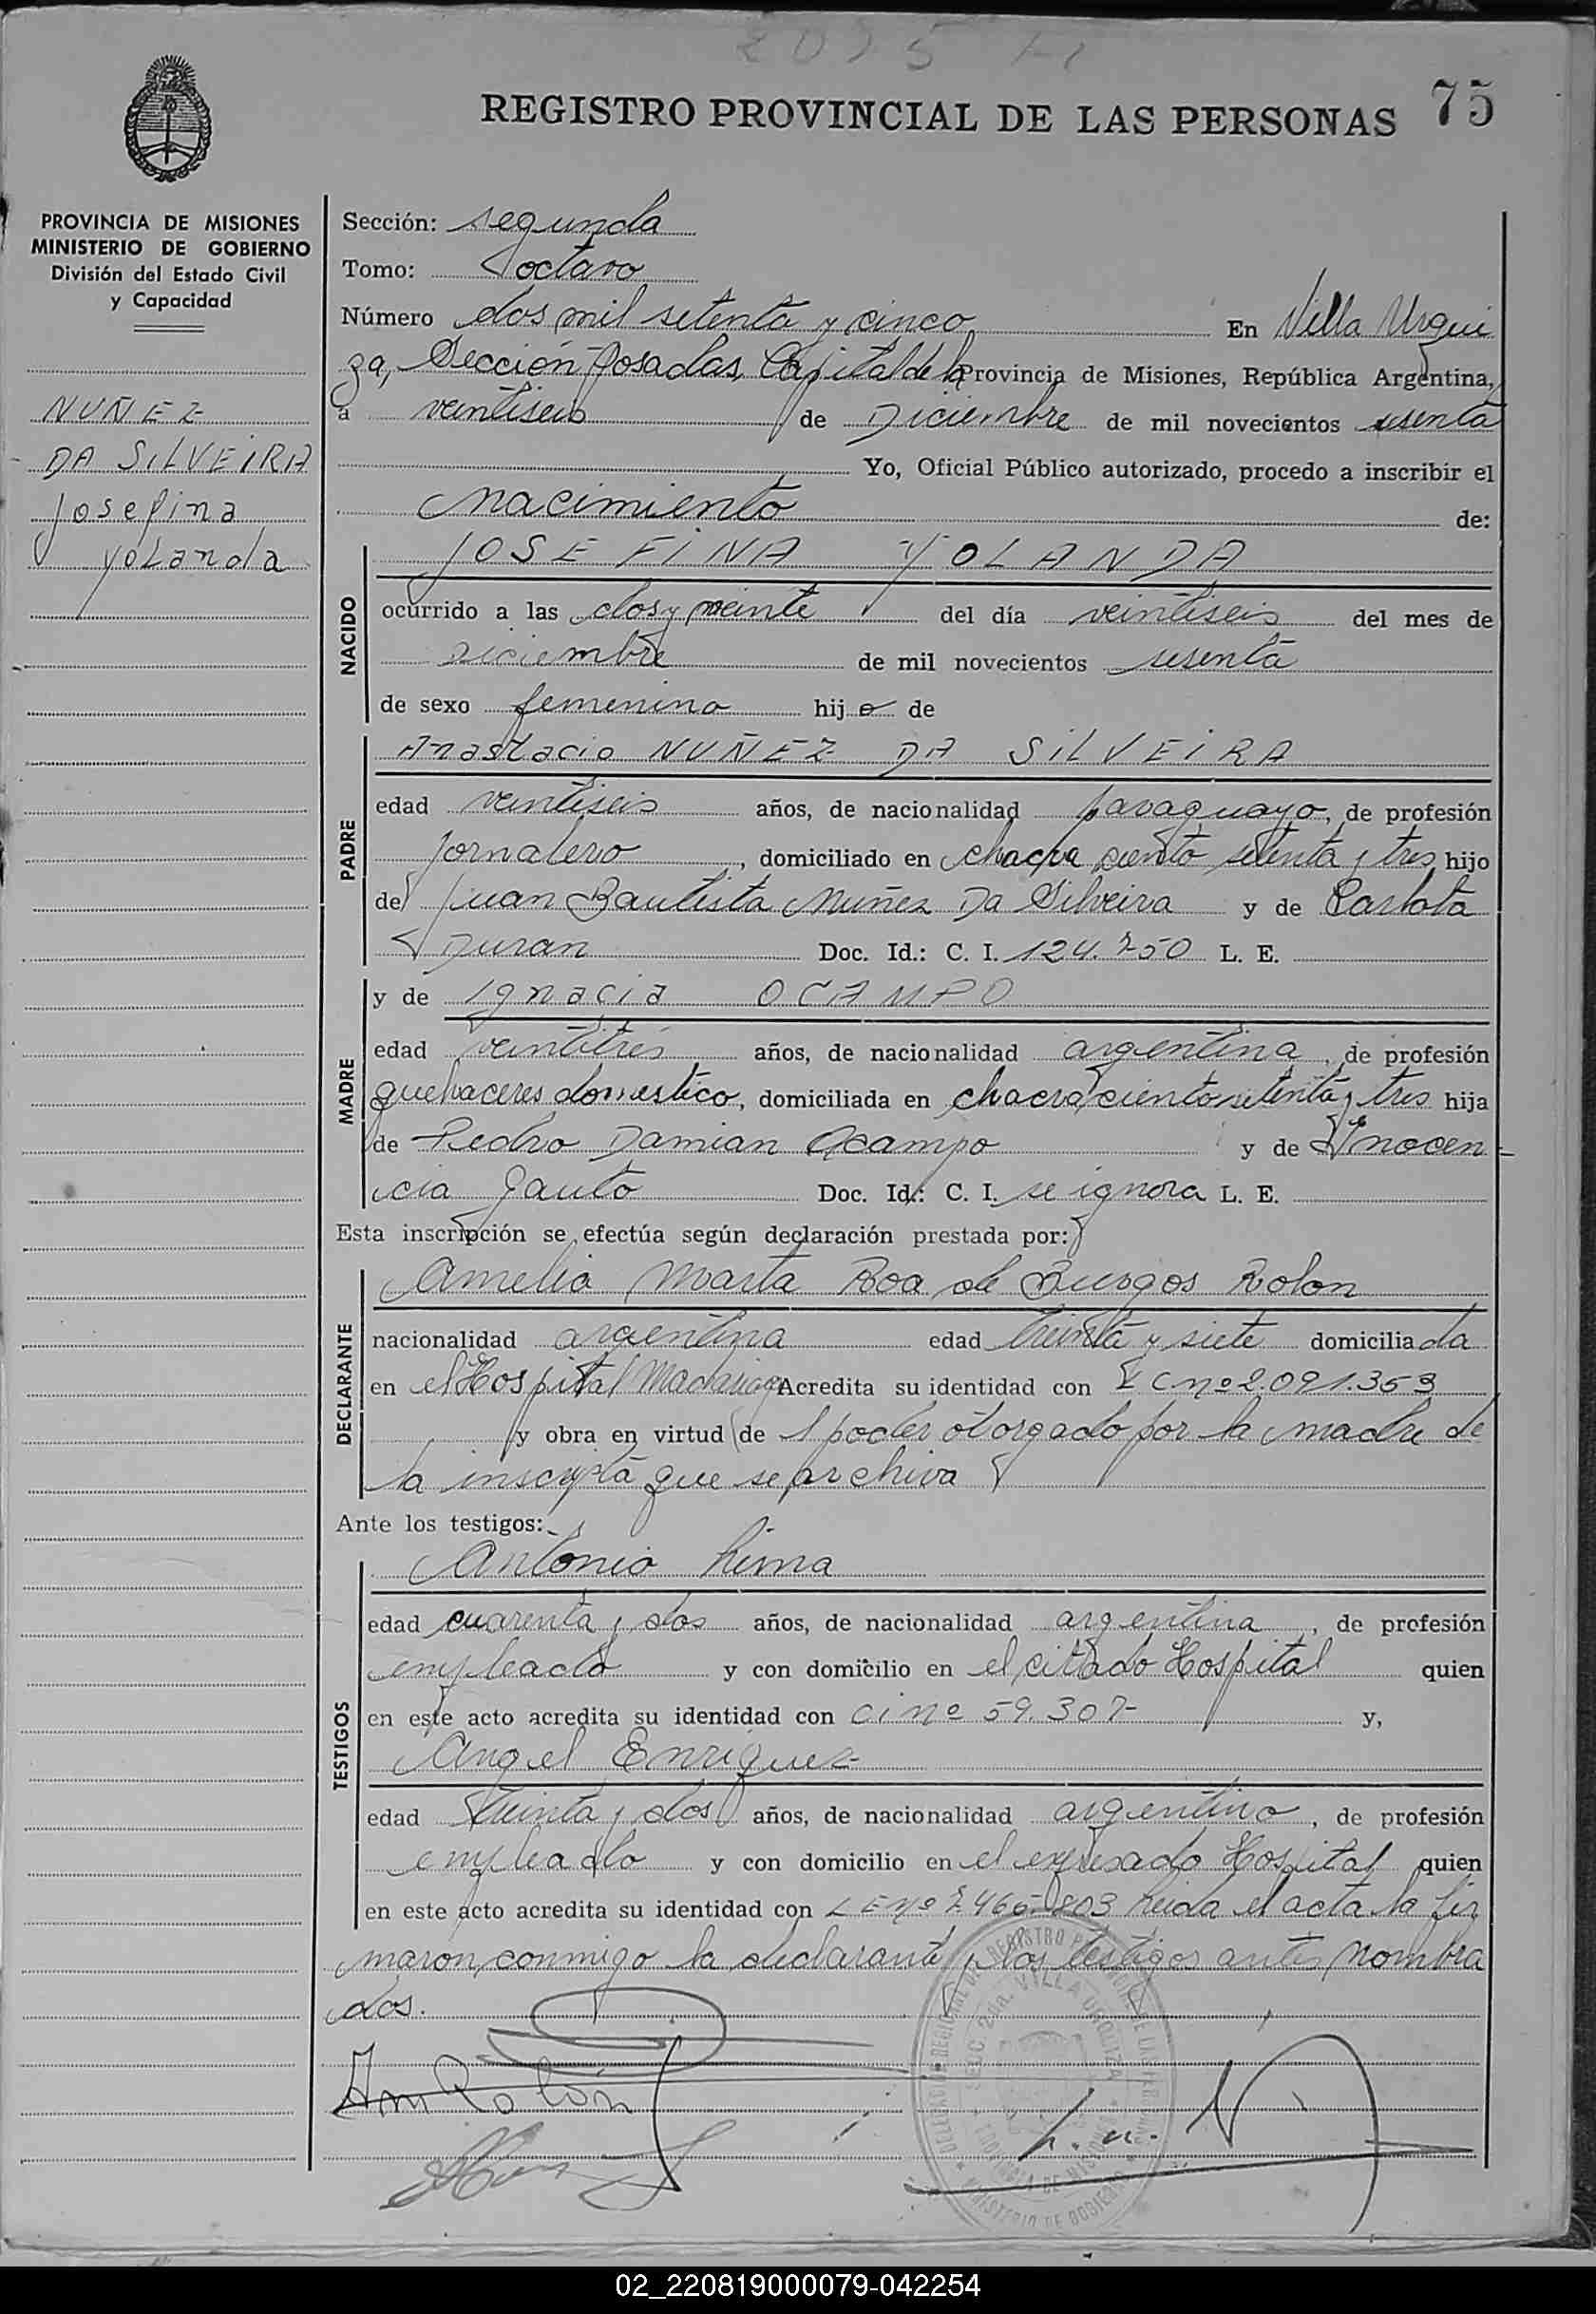 2075
REGISTRO PROVINCIAL DE LAS PERSONAS 75
PROVINCIA DE MISIONES
MINISTERIO DE GOBIERNO
División del Estado Civil
y Capacidad
NUÑEZ
DA SILVEIRA
Josefina
Yolanda
Sección: segunda
Tomo: octavo
Número dos mil setenta y cinco En Villa Urqui
za, Sección Posadas, Capital de la Provincia de Misiones, República Argentina,
a veintiseis de Diciembre de mil novecientos sesenta
Yo, Oficial Público autorizado, procedo a inscribir el
nacimiento de:
NACIDO
JOSEFINA YOLANDA
ocurrido a las dos y veinte del día veintiseis del mes de
diciembre de mil novecientos sesenta
de sexo femenino hij a de
PADRE
Anastacio NUÑEZ DA SILVEIRA
edad veintiseis años, de nacionalidad paraguayo, de profesión
Jornalero, domiciliado en chacra ciento setenta y tres hijo
de Juan Bautista Nuñez Da Silveira y de Carlota
Duran Doc. Id.: C. I. 124.750 L. E.
MADRE
y de Ignacia OCAMPO
edad veintitres años, de nacionalidad argentina, de profesión
quehaceres domestico, domiciliada en chacra ciento setenta y tres hija
de Pedro Damian Ocampo y de Ynocen-
cia Gauto Doc. Id.: C. I. se ignora L. E.
Esta inscripción se efectúa según declaración prestada por:
DECLARANTE
Amelia Marta Roa de Burgos Rolon
nacionalidad argentina edad treinta y siete domicilia da
en el Hospital Madariaga Acredita su identidad con L C nº 2.091.353
y obra en virtud de poder otorgado por la madre de
la inscripta que se archiva
Ante los testigos:
TESTIGOS
Antonio Lima
edad cuarenta y dos años, de nacionalidad argentina, de profesión
empleado y con domicilio en el citado Hospital quien
en este acto acredita su identidad con ci nº 59.307 y,
Angel Enriquez
edad treinta y dos años, de nacionalidad argentino, de profesión
empleado y con domicilio en el expresado Hospital quien
en este acto acredita su identidad con L E nº 7.466.803 Leida el acta la fir
maron, conmigo la declarante y los testigos antes nombra
dos.
SECC. 2da. VILLA URQUIZA
PROVINCIA DE MISIONES
MINISTERIO DE GOBIERNO
Am Rolón
02_220819000079-042254